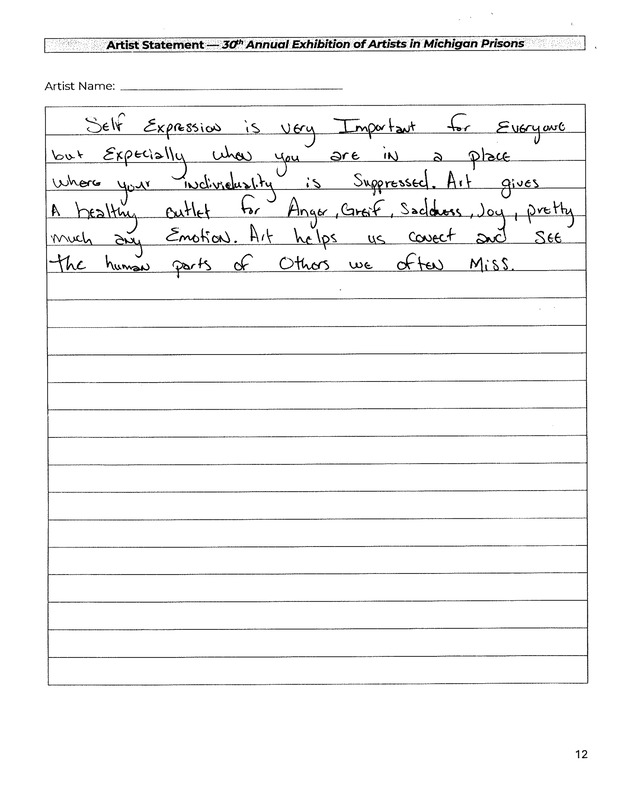 Artist Statement — 30th Annual Exhibition of Artists in Michigan Prisons
Artist Name:
Self Expression is very Important for Everyone
but Expecially when you are in a place
where your individuality is Suppressed. Art gives
A healthy outlet for Anger, Greif, Saddness, Joy, pretty
much any Emotion. Art helps us conect and SEE
the human parts of Others we often Miss.
12